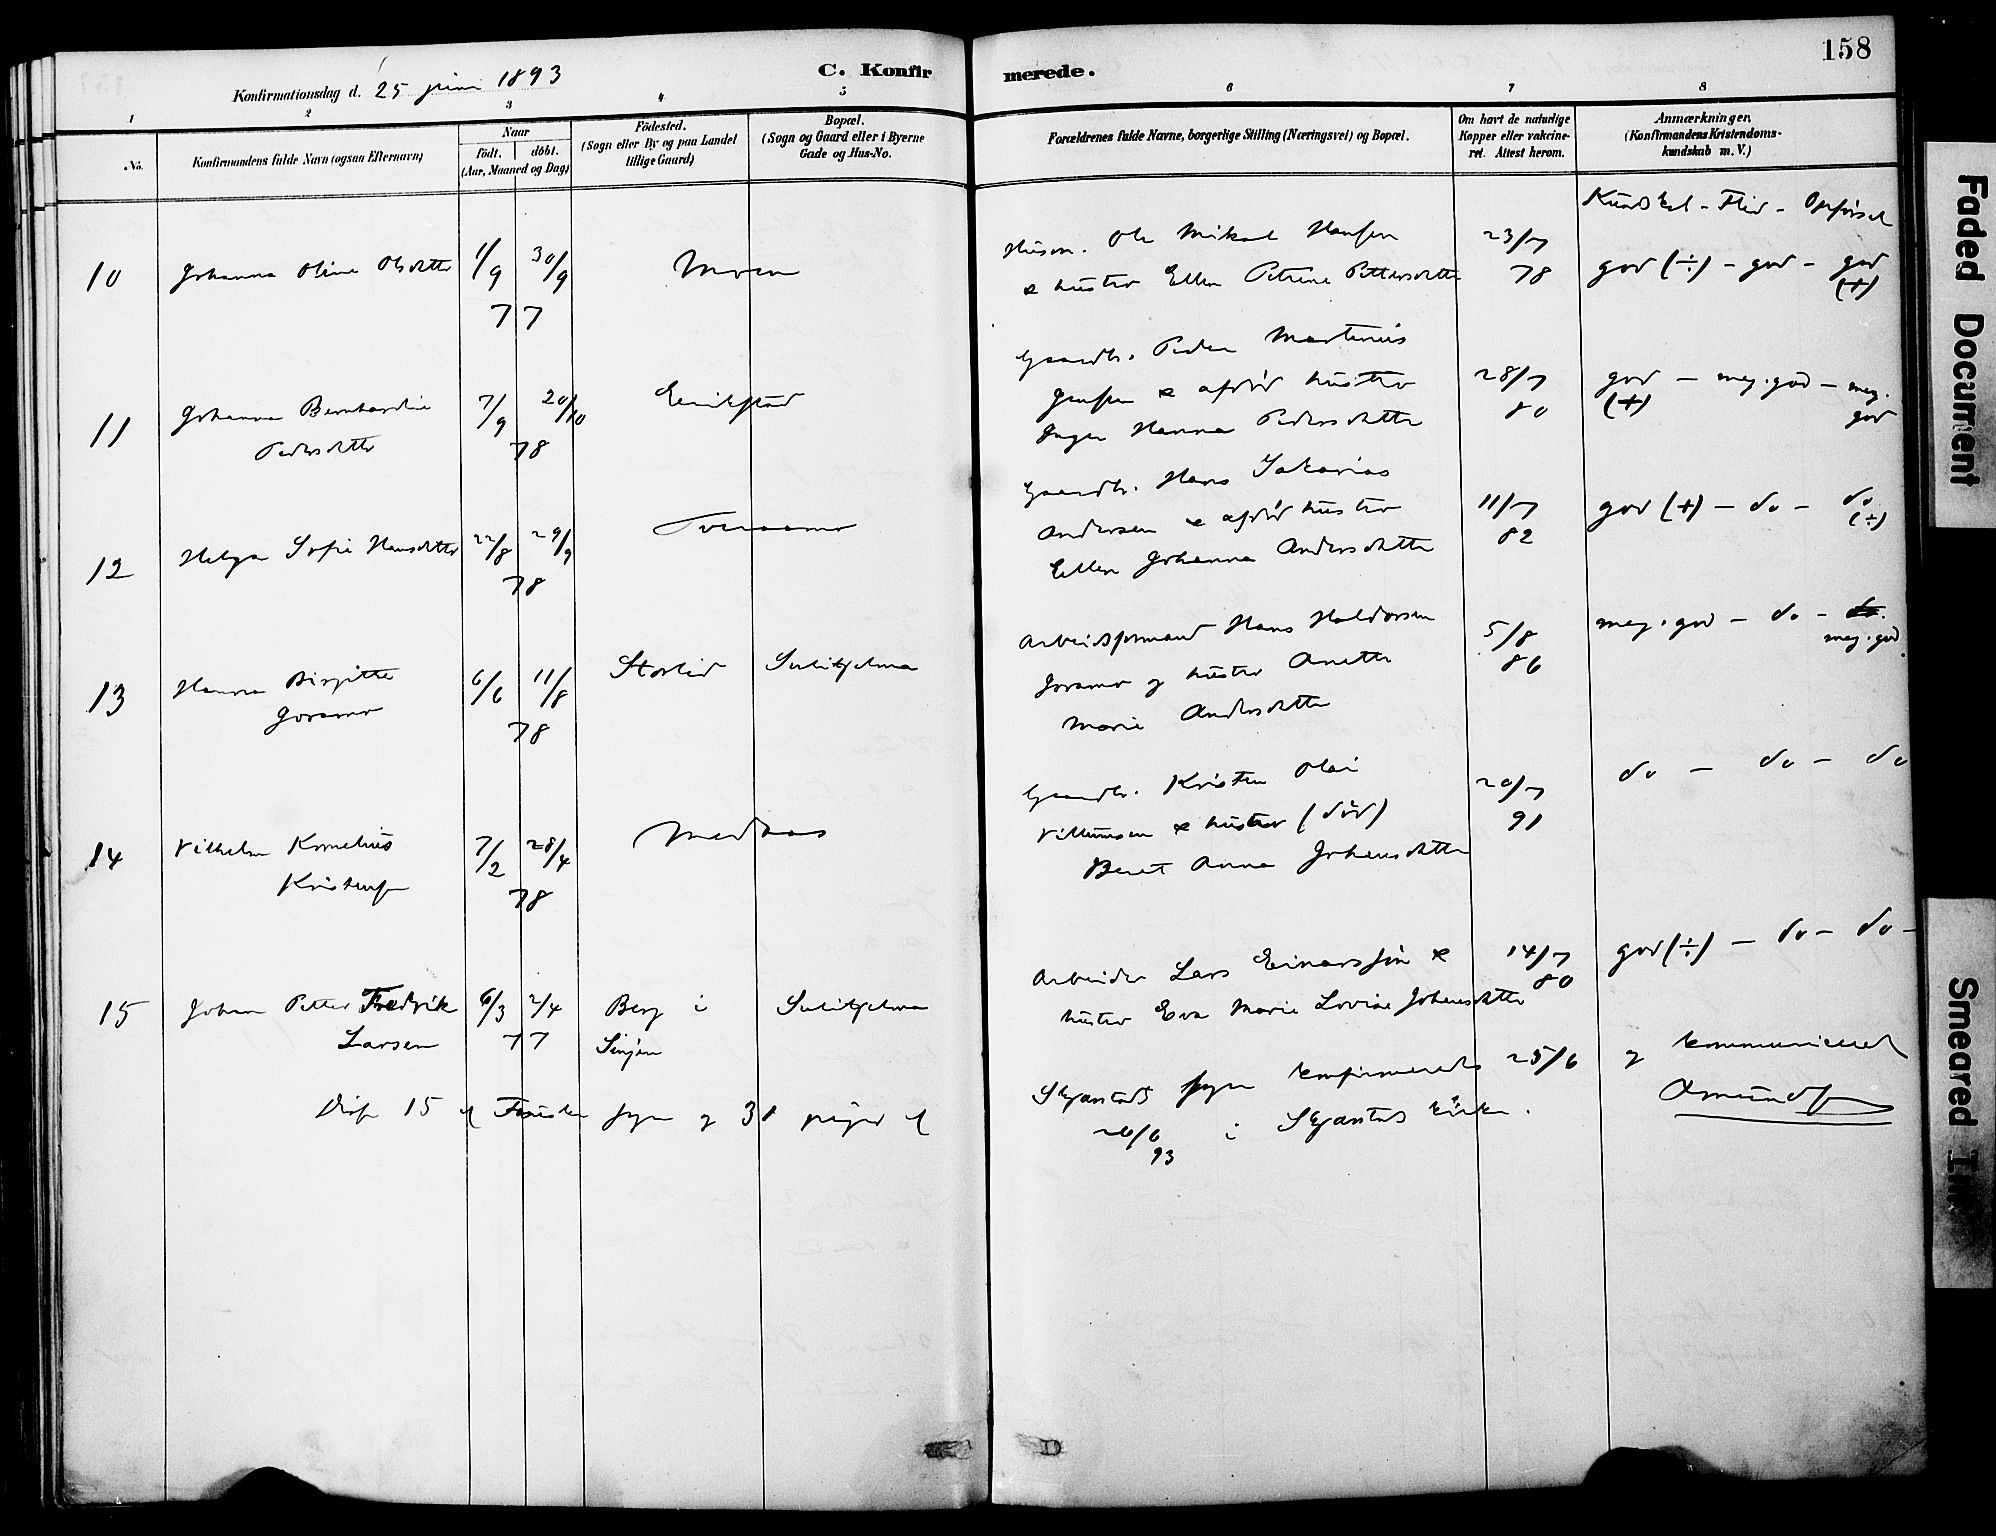 158
Konfirmationsdag d. 25 juni 1893
C. Konfirmerede.
1 2 3 4 5 6 7 8
No.
Konfirmandens fulde Navn (ogsaa Efternavn)
Naar
født. døbt.
(Aar, Maaned og Dag)
Födested.
(Sogn eller By og paa Landet
tillige Gaard)
Bopæl.
(Sogn og Gaard eller i Byerne
Gade og Hus-No.
Forældrenes fulde Navne, borgerlige Stilling (Næringsvei) og Bopæl.
Om havt de naturlige
Kopper eller vakcine-
ret. Attest herom.
Anmærkninger.
(Konfirmandens Kristendoms-
kundskab m. V.)
Kundskab - Flid - Opførsel
10 Johanna Oline Olsdatter 1/9 30/9 77 Moen
Husm. Ole Mikal Hansen
& hustro Ellen Petrine Pettersdatter
23/7 78
god (÷) - god - god (+)
11 Johanna Bernhardine
Pedersdatter
7/9 20/10 78
Erikstad
Gaardb. Peder Martinus
Jensen & afdød hustro
Inger Hanna Pedersdatter
28/7 80
god (+) - meg. god - meg. god
12 Helga Sofie Hansdatter 22/8 29/9 78 Tveraamo
Gaardb. Hans Sakarias
Andersen & afdød hustro
Ellen Johanna Andersdatter
11/7 82
god (+) - do - do (÷)
13 Hanna Birgitte
Joramo
6/6 11/8 78
Storlid Sulitjelma
Arbeidsformand Hans Haldorsen
Joramo og hustro Anette
Marie Andersdatter
5/8 86
meg. god - do - do.
meg. god
14 Vilhelm Kornelius
Kristensen
7/2 28/4 78
Medaas
Gaardb. Kristen Olai
Villumsen & hustro (død)
Beret Anna Johansdatter
20/7 91
do - do - do
15 Johan Petter Fredrik
Larsen
6/3 2/4 77
Berg i
Senjen
Sulitjelma
Arbeider Lars Einarssøn &
hustro Eva Marie Lovise Johansdatter
14/7 80
god (÷) - do - do -
Disse 15 af Fauske sogn og 31 piger af
Skjerstads sogn konfirmerede 25/6 og kommunicered
26/6 93 i Skjerstads kirke.
Amundsen
Faded Document
Smeared Ink